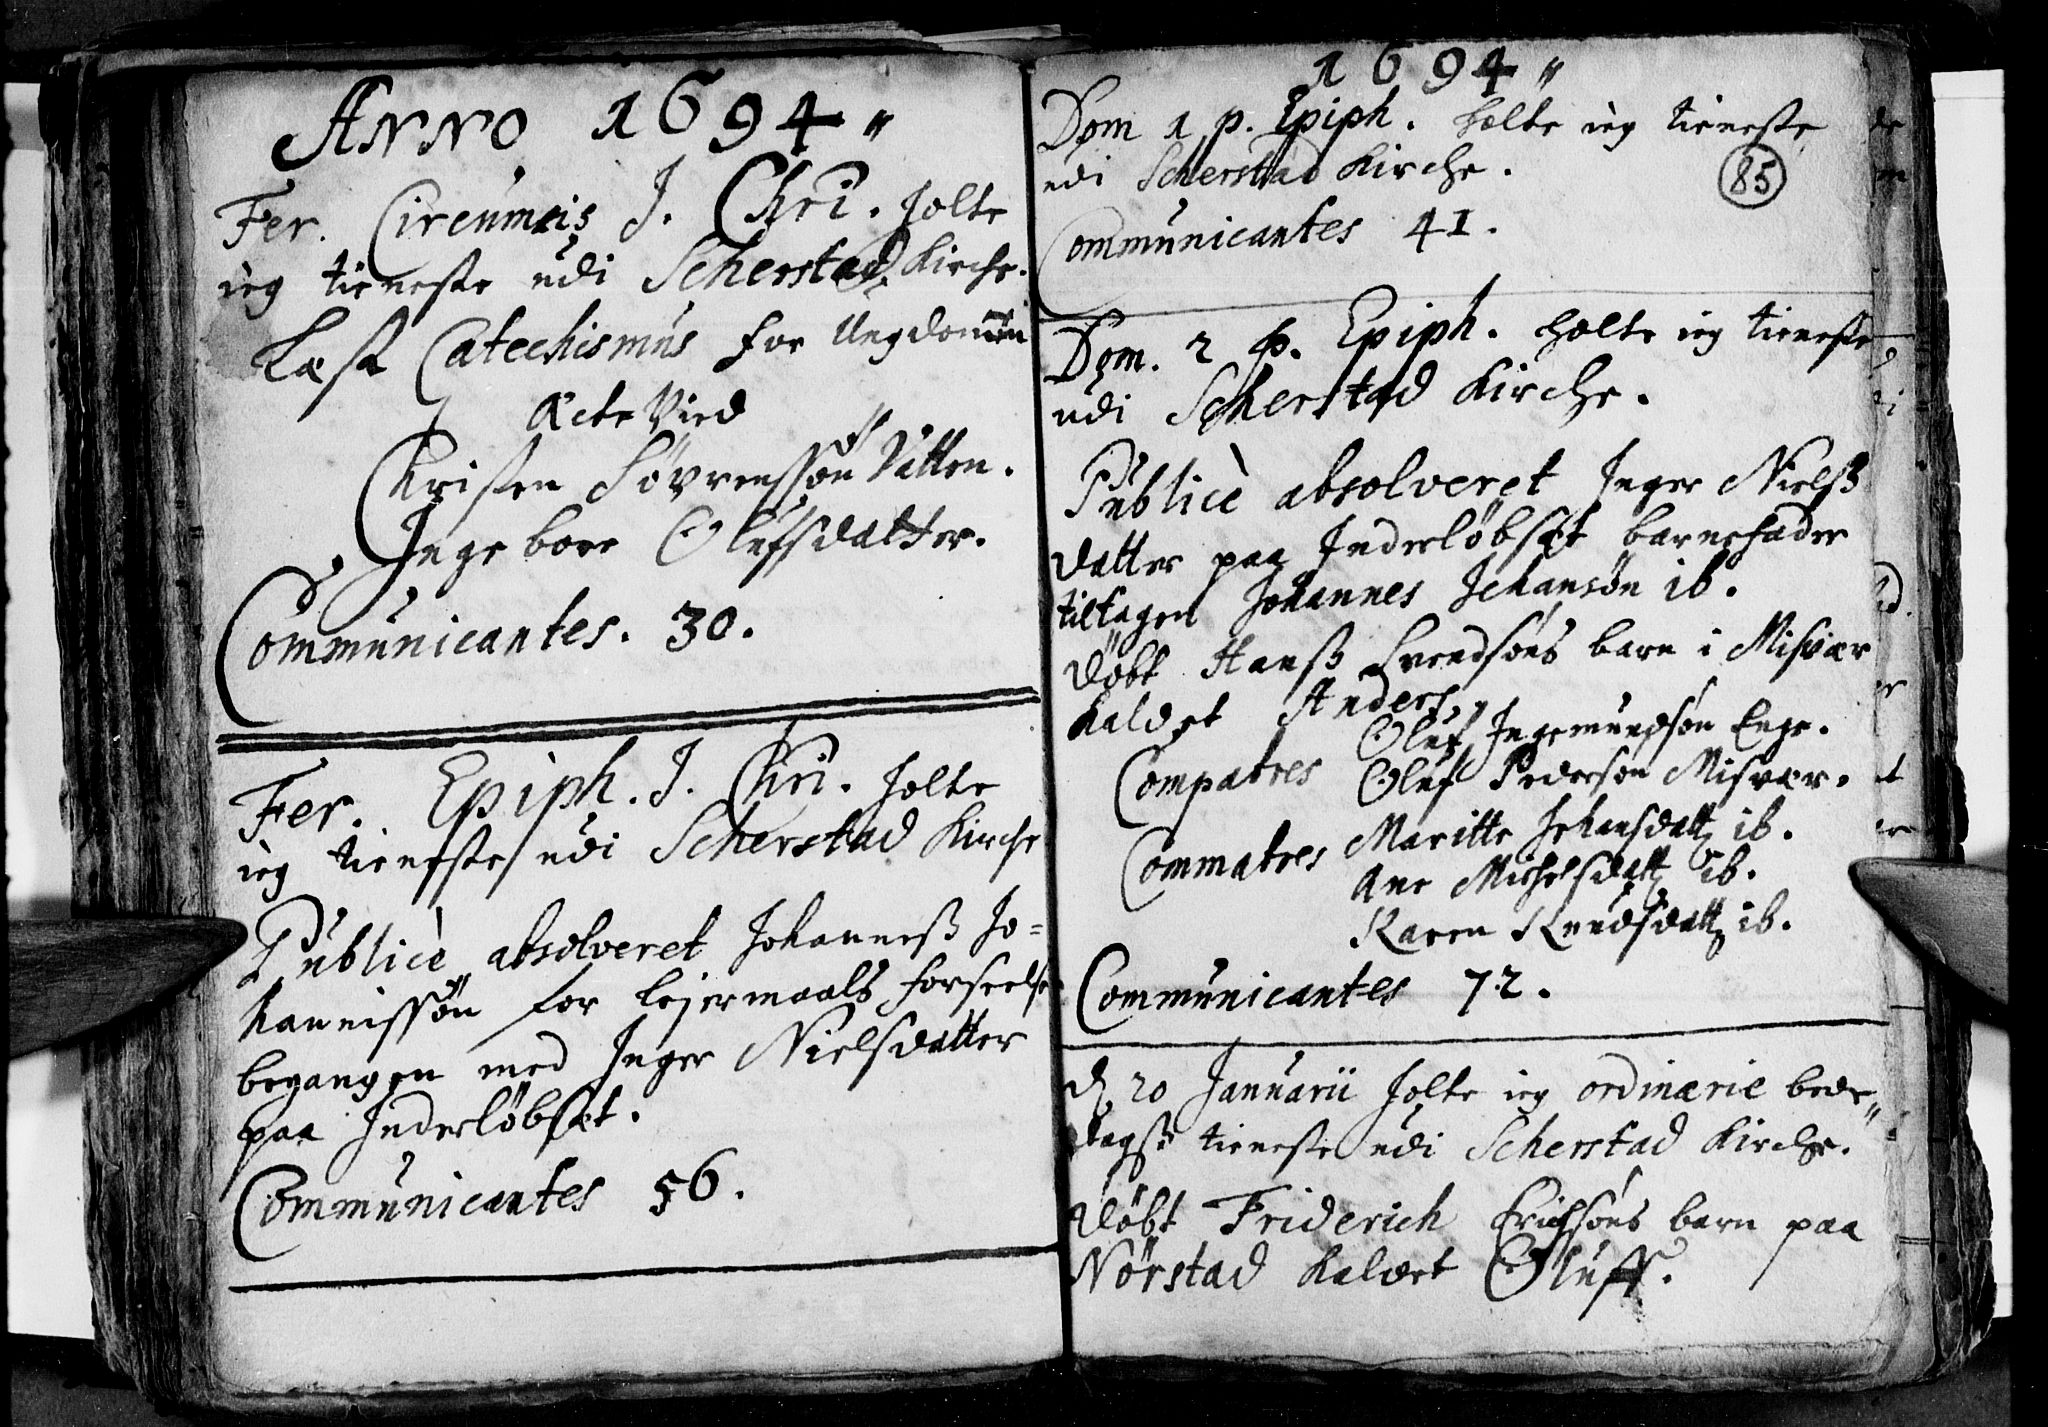 Anno 1694
Fer. Circumcis J. Chri. holte
ieg tieneste udi Scherstad Kirche.
Læst Catechismus for Ungdommen
Ecte Vied
Christen Sövrenssøn Vatten.
Ingebore Olufsdatter.
Communicantes. 30.
Fer. Epiph. J. Chri. holte
ieg tieneste udi Scherstad Kirche
Publicè absolveret Johanneß Jo-
hannissøn for lejermaals forseelse
begangen med Inger Nielsdatter
paa Inderlöbset.
Communicantes 56.
1694
Dom 1 p. Epiph. holte ieg tieneste
udi Scherstad Kirche.
85
Communicantes 41.
Dom. 2 p. Epiph. holte ieg tieneste
udi Scherstad Kirche.
Publicè absolveret Inger Nielß
datter paa Inderlöbset barnefader
tiltagen Johannes Johansøn ib.
Döbt Hanß Svendsøns barn i Misvær
kaldet Anders,
Oluf Ingemundsøn Enge.
Compatres Oluf Pedersøn Misvær.
Commatres Maritte Johansdatt ib.
Ane Michelsdatt ib.
Karen Knudsdatt ib.
Communicantes 72.
d. 20 Januarii holte ieg ordinærie bede-
dagß tieneste udi Scherstad Kirche.
Döbt Friderich Erichsøns barn paa
Nörstad kaldet Oluff.